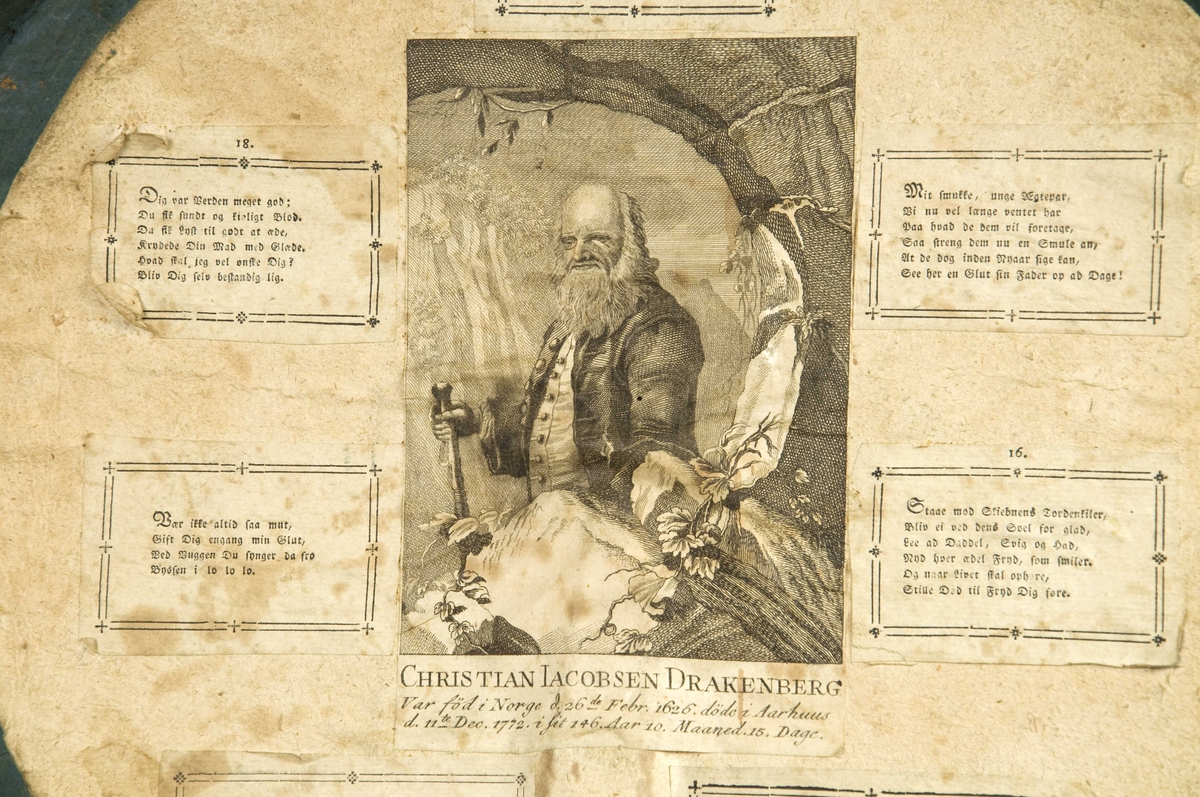 18.
Dig var Verden meget god;
Du fik sundt og kierligt Blod.
Da fik Lyst til godt at æde,
Krydede Din Mad med Glæde.
Hvad skal jeg vel ønske Dig?
Bliv Dig selv bestandig lig.
Vær ikke altid saa mut,
Gift Dig engang min Glut,
Ved Vuggen Du synger da fro
Byssen i lo lo lo.
CHRISTIAN IACOBSEN DRAKENBERG
Var föd i Norge d. 26de Febr. 1626. döde i Aarhuus
d. 11te Dec. 1772. i sit 146. Aar 10. Maaned. 15. Dage.
Mit smukke, unge Ægtepar,
Vi nu vel længe ventet har
Paa hvad de dem vil foretage,
Saa streng dem nu en Smule an,
At de dog inden Nyaar sige kan,
See her en Glut sin Fader op ad Dage!
16.
Staae mod Skiebnens Tordenkiler,
Bliv ei ved dens Soel for glad,
Lee ad Daddel, Svig og Had,
Nyd hver ædel Fryd, som smiler.
Og naar Livet skal ophøre,
Stille Død til Fryd Dig føre.